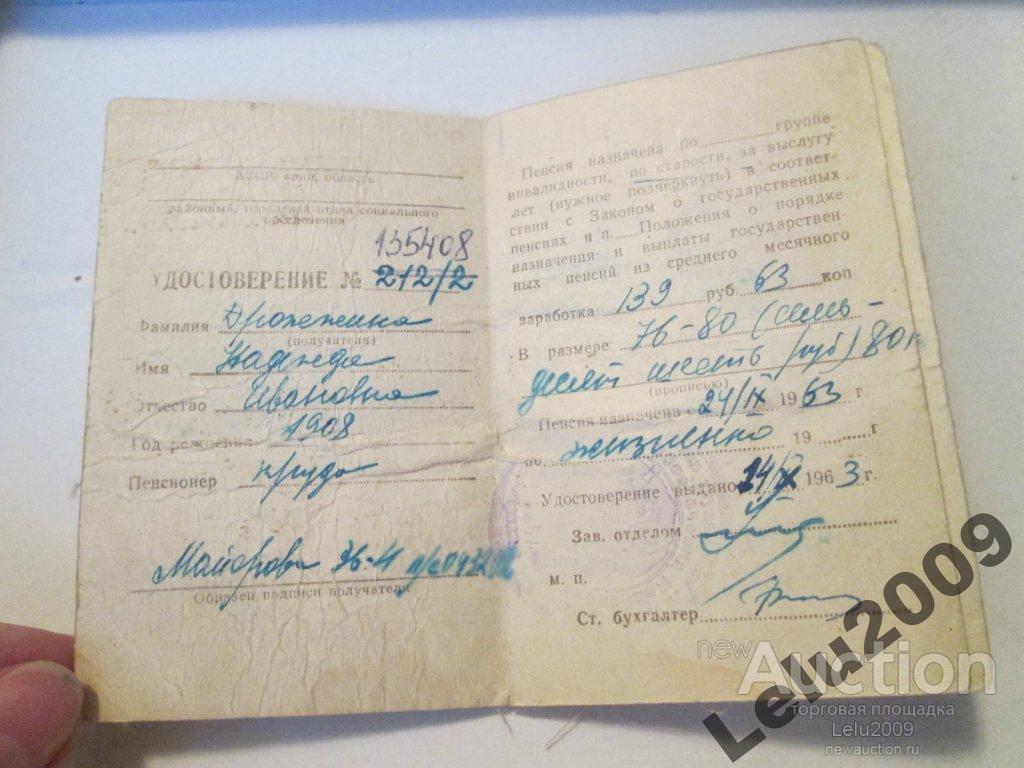 АССР, край, область
районный, городской отдел социального
обеспечения
135408
УДОСТОВЕРЕНИЕ № 212/2
Фамилия Дрожжина
(получателя)
Имя Надежда
Отчество Ивановна
Год рождения 1908
Пенсионер труда
Майорова 36-4
Образец подписи получателя
Пенсия назначена по группе
инвалидности, по старости, за выслугу
лет (нужное подчеркнуть) в соответ-
ствии с Законом о государственных
пенсиях и п. Положения о порядке
назначения и выплаты государствен-
ных пенсий из среднего месячного
заработка 139 руб. 63 коп
В размере 76-80 (семь-
десят шесть руб) 80 к
(прописью)
Пенсия назначена с 24/IX 1963 г.
по пожизненно 19 г
Удостоверение выдано 14/X 1963 г.
Зав. отделом
м. п.
Ст. бухгалтер
newAuction
торговая площадка
Lelu2009
newauction.ru
Lelu2009